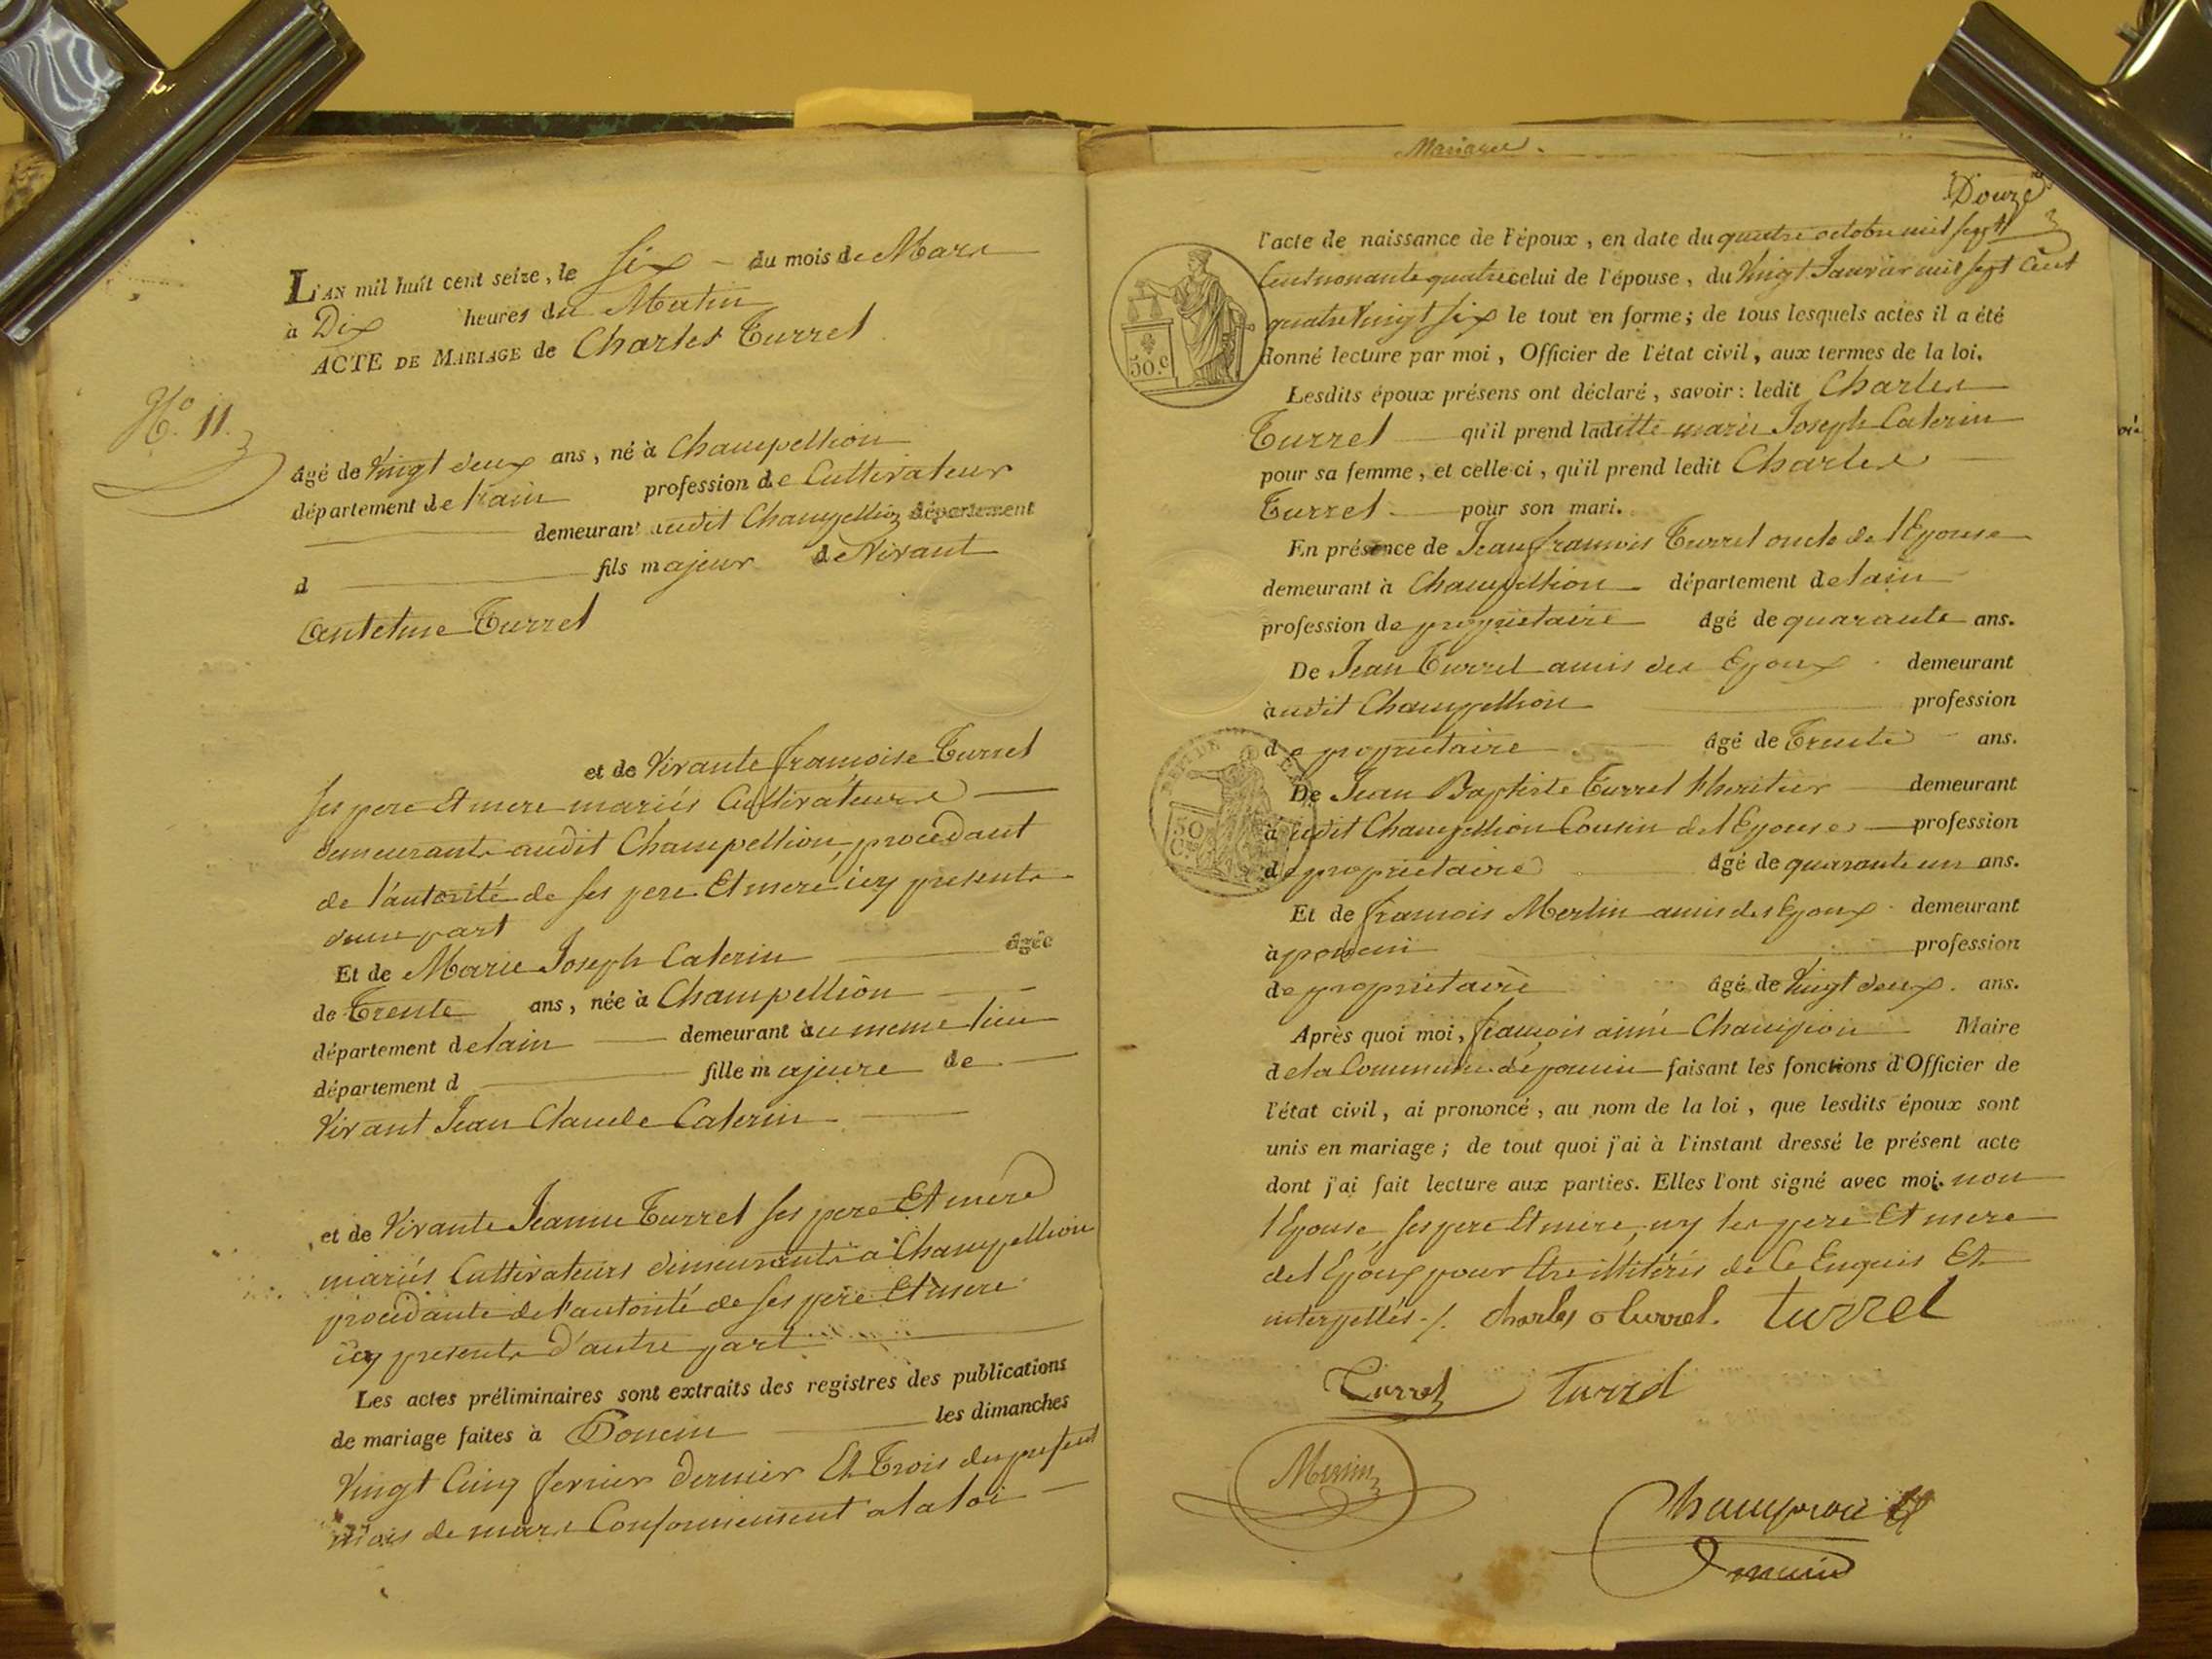 L'AN mil huit cent seize, le Six du mois de Mars
à Dix heures du Matin
ACTE DE MARIAGE de Charles Turrel
N.º 11.
âgé de Vingt deux ans, né à Champellion
département de l'ain profession de Cultivateur
demeurant audit Champellion département
d fils majeur de Vivant
Turrel
et de Vivante francoise Turrel
ses pere Et mere mariés Cultivateurs
demeurants audit Champellion, procedant
de l'autorité de ses pere Et mere icy presents
d'une part
Et de Marie Joseph Caterin âgée
de Trente ans, née à Champellion
département de lain demeurant au meme lieu
département d fille majeure de
Vivant Jean Claude Caterin
et de Vivante Jeanne Turrel ses pere Et mere
mariés Cultivateurs demeurants a Champellion
procedante de l'autorité de ses pere Et mere
icy presents d'autre part
Les actes préliminaires sont extraits des registres des publications
de mariage faites à Poncin les dimanches
Vingt Cinq fevrier dernier Et Trois du present
mois de mars Conformement a la loi
Mariages.
Douze
l'acte de naissance de l'époux, en date du quatre octobre mil sept
Cent nonante quatre celui de l'épouse, du Vingt Janvier mil sept Cent
quatre Vingt Six le tout en forme; de tous lesquels actes il a été
donné lecture par moi, Officier de l'état civil, aux termes de la loi.
50.c
Lesdits époux présens ont déclaré, savoir: ledit Charles
Turrel qu'il prend laditte marie Joseph Caterin
pour sa femme, et celle-ci, qu'il prend ledit Charles
Turrel pour son mari.
En présence de Jean francois Turrel oncle de l'Epouse
demeurant à Champellion département de lain
profession de proprietaire âgé de quarante ans.
De Jean Turrel amis des Epoux demeurant
audit Champellion profession
de proprietaire âgé de Trente ans.
DEPT DE
50
C.
De Jean Baptiste Turrel l'heritier demeurant
à audit Champellion Cousin de l'Epouse profession
de proprietaire âgé de quarante un ans.
Et de francois Merlin amis des Epoux demeurant
à poncin profession
de proprietaire âgé de Vingt deux ans.
Après quoi moi, francois aimé Champion Maire
de la Commune de poncin faisant les fonctions d'Officier de
l'état civil, ai prononcé, au nom de la loi, que lesdits époux sont
unis en mariage; de tout quoi j'ai à l'instant dressé le présent acte
dont j'ai fait lecture aux parties. Elles l'ont signé avec moi. non
l'Epouse, ses pere Et mere, ny les pere Et mere
de l'Epoux pour être illitérés de Ce Enquis Et
interpellés ./. charles turrel. turrel
Turrel turrel
Champion